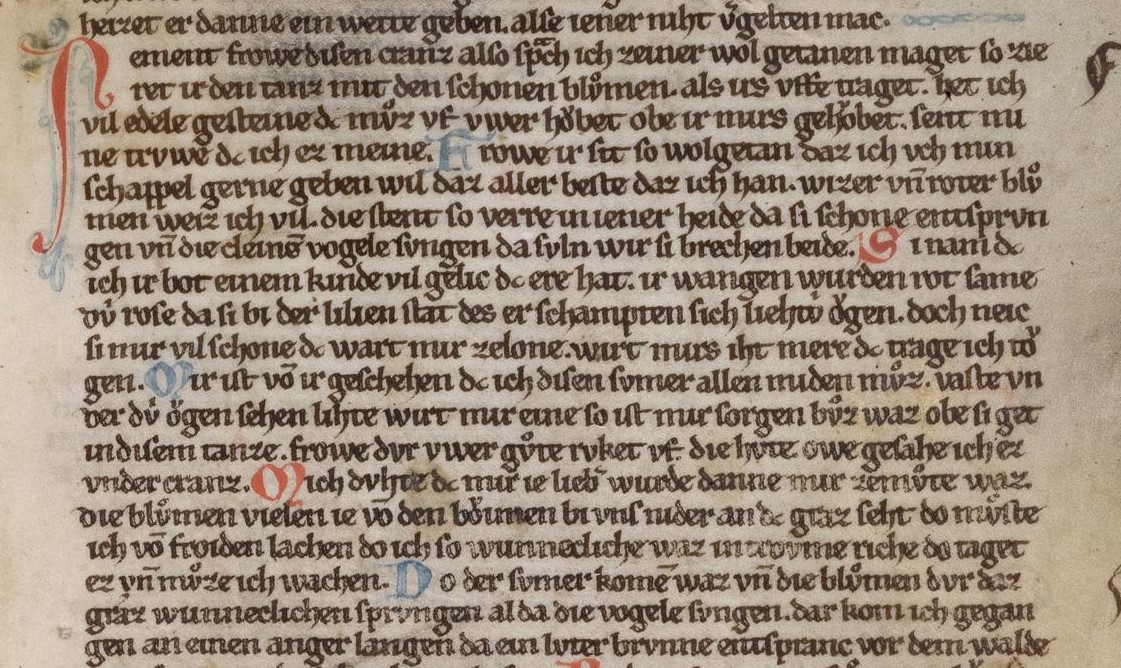 herzet er danne ein wette geben. alse iener niht v͛gelten mac.
Nement frowe disen cranz also spͣch ich zeiner wol getanen maget so zie
ret ir den tanz mit den schonen blůmen. als irs vffe traget. het ich
vil edele gesteine dc můz vf vwer hǒbet obe ir mirs gelǒbet. sent mi
ne trvwe dc ich ez meine. Frowe ir sit so wolgetan daz ich vch min
schappel gerne geben wil daz aller beste daz ich han. wizer vn̄ roter blů
men weiz ich vil. die stent so verre in iener heide da si schone entsprvn
gen vn̄ die cleinē vogele svngen da svln wir si brechen beide. Si nam dc
ich ir bot einem kinde vil gelic dc ere hat. ir wangen wurden rot same
dv̓ rose da si bi der lilien stat des er schampten sich liehtv̓ ǒgen. doch neic
si mir vil schone dc wart mir zelone. wirt mirs iht mere dc trage ich tǒ
gen. Mir ist vō ir geschehen dc ich disen svmer allen miden můz. vaste vn
der dv̓ ǒgen sehen lihte wirt mir eine so ist mir sorgen bůz waz obe si get
in disem tanze. frowe dvr vwer gůte rvket vf die hv̊te owe gesahe ich ez
vnder cranz. Mich dvhte dc mir ie lieb͛ wurde danne mir zemůte waz.
die blůmen vielen ie vō den bǒimen bi vns nider an dc graz seht do mv̊ste
ich vō froiden lachen do ich so wunnecliche waz in trovme riche do taget
ez vn̄ mv̊ze ich wachen. Do der svmer komē waz vn̄ die blůmen dvr daz
graz wunneclichen sprvngen al da die vogele svngen. dar kom ich gegan
gen an einen anger langen da ein lvter brvnne entspranc vor dem walde